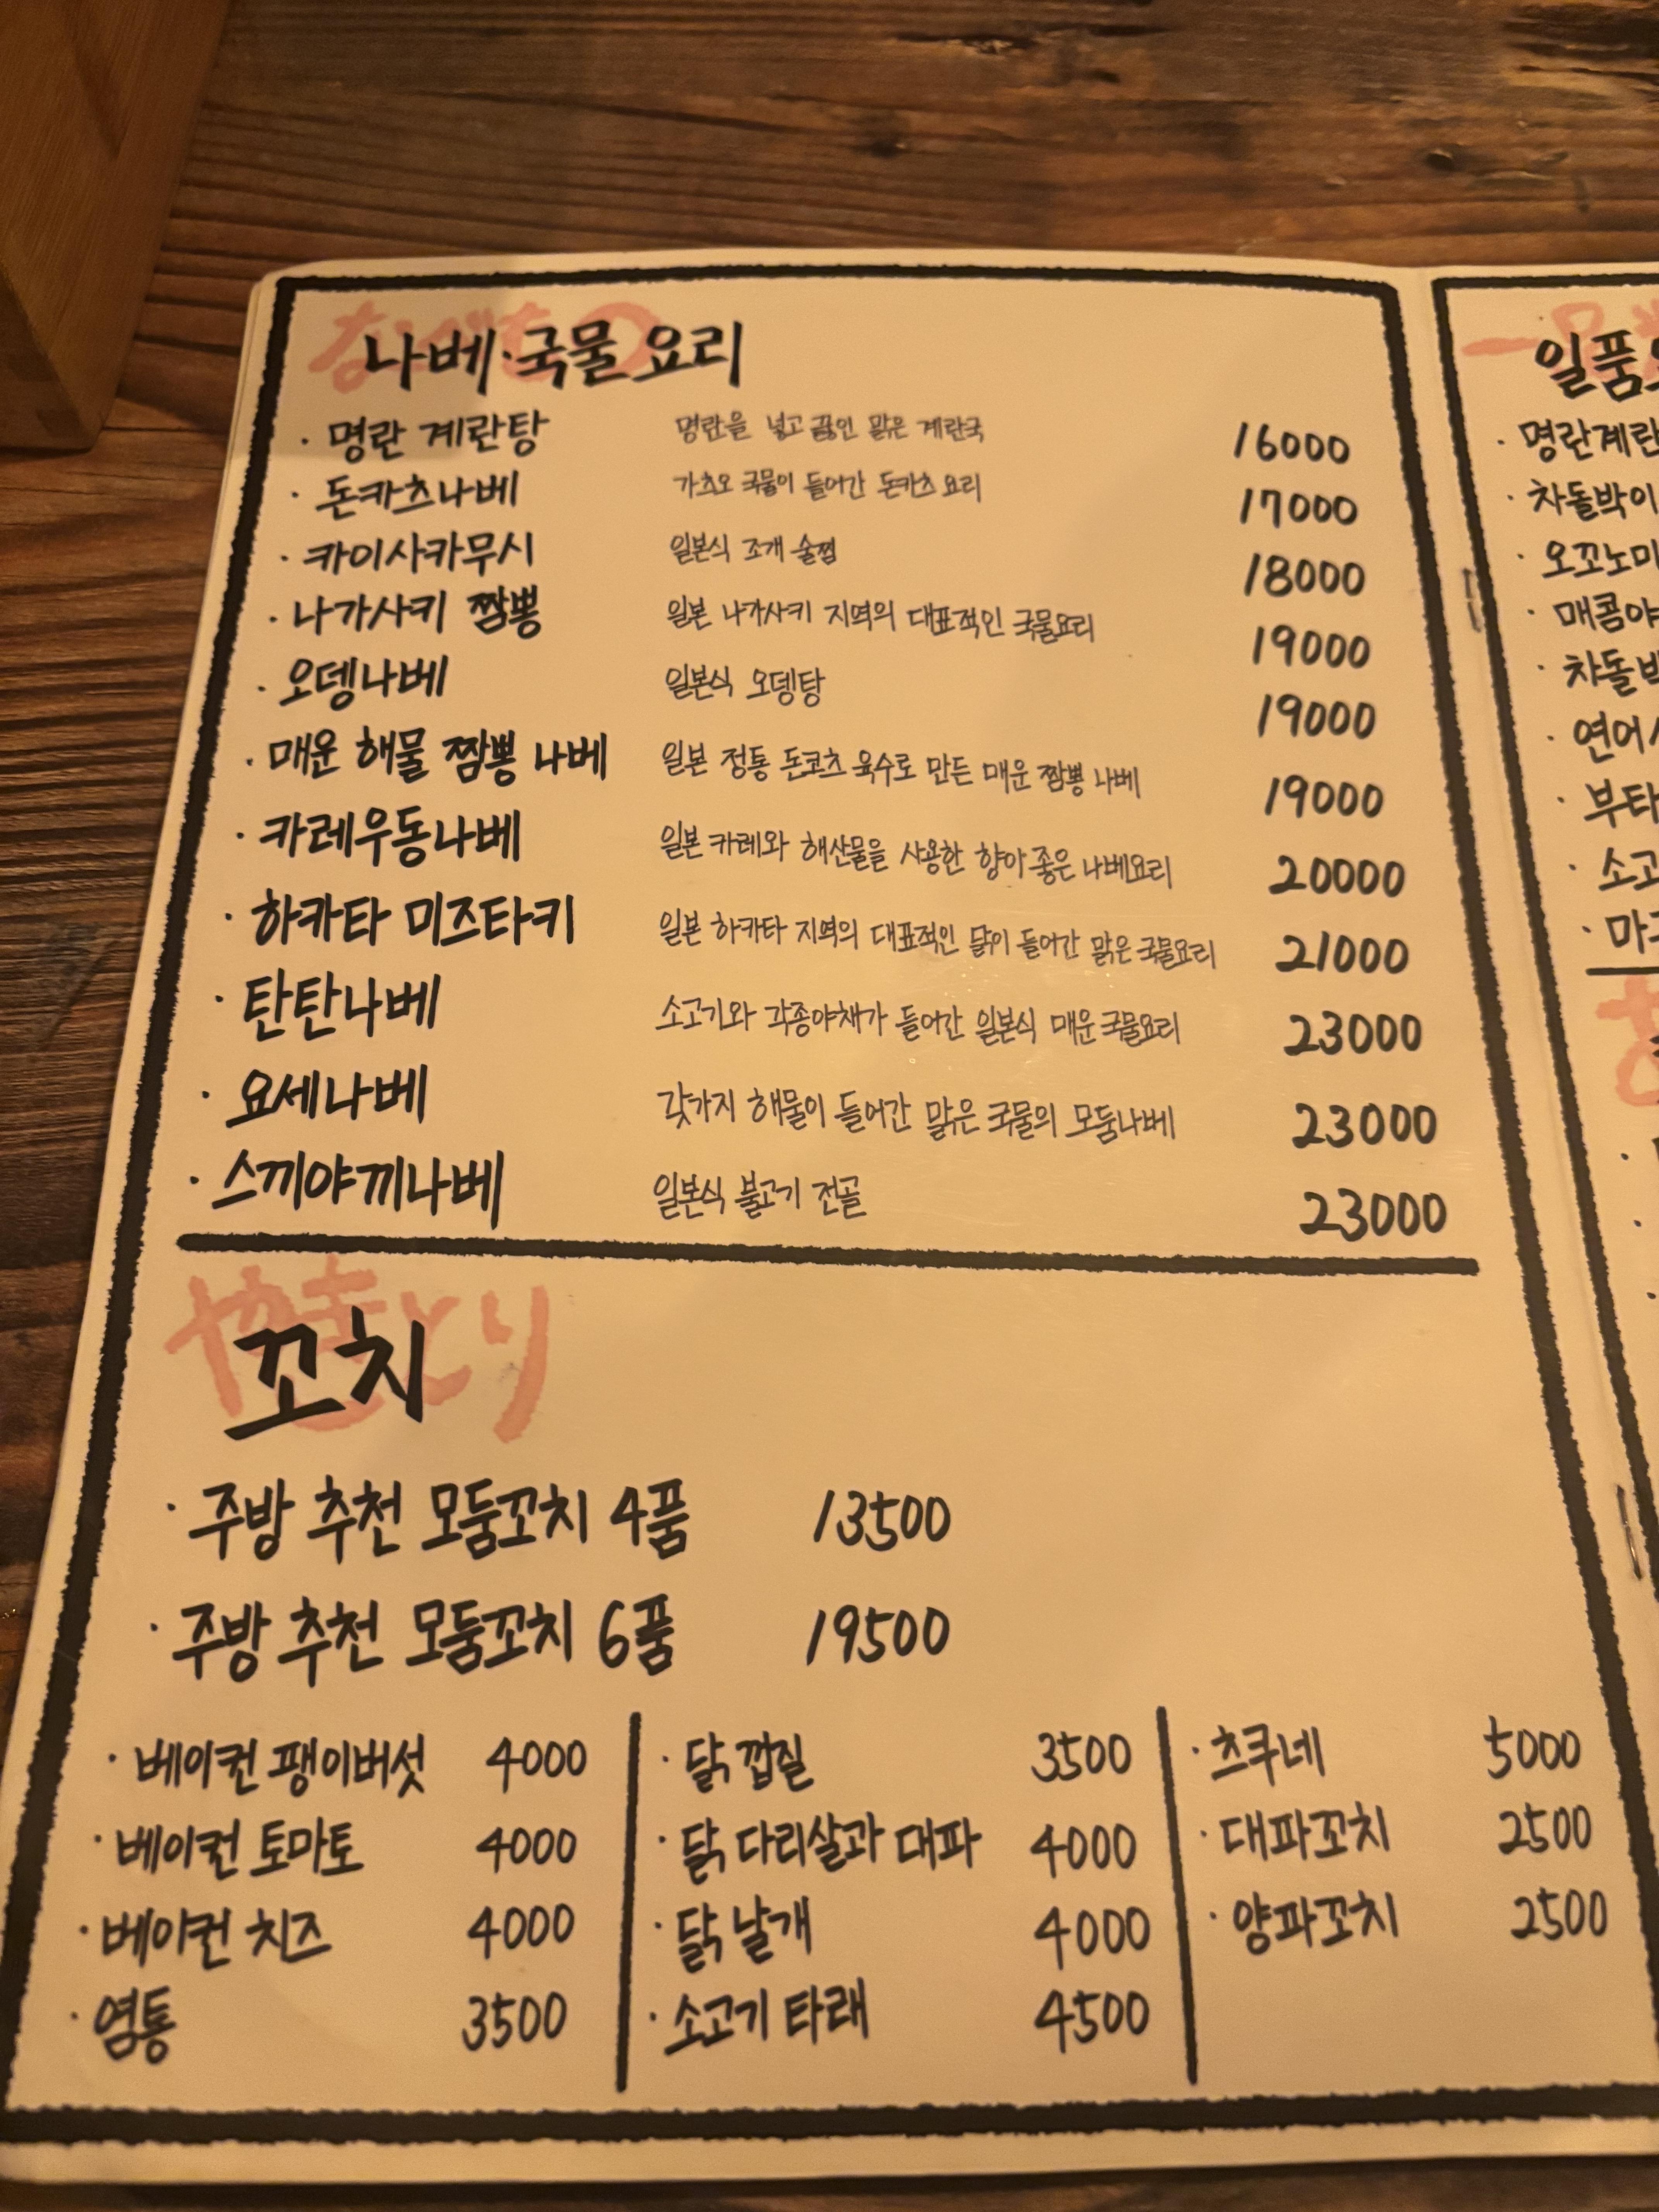 なべもの
나베·국물 요리
· 명란 계란탕 명란을 넣고 끓인 맑은 계란국 16000
· 돈카츠나베 가츠오 국물이 들어간 돈카츠 요리 17000
· 카이사카무시 일본식 조개 술찜 18000
· 나가사키 짬뽕 일본 나가사키 지역의 대표적인 국물요리 19000
· 오뎅나베 일본식 오뎅탕 19000
· 매운 해물 짬뽕 나베 일본 정통 돈코츠 육수로 만든 매운 짬뽕 나베 19000
· 카레우동나베 일본 카레와 해산물을 사용한 향아 좋은 나베요리 20000
· 하카타 미즈타키 일본 하카타 지역의 대표적인 닭이 들어간 맑은 국물요리 21000
· 탄탄나베 소고기와 각종야채가 들어간 일본식 매운 국물요리 23000
· 요세나베 갖가지 해물이 들어간 맑은 국물의 모둠나베 23000
· 스끼야끼나베 일본식 불고기 전골 23000
やきとり
꼬치
· 주방 추천 모둠꼬치 4품 13500
· 주방 추천 모둠꼬치 6품 19500
· 베이컨 팽이버섯 4000
· 베이컨 토마토 4000
· 베이컨 치즈 4000
· 염통 3500
· 닭 껍질 3500
· 닭 다리살과 대파 4000
· 닭 날개 4000
· 소고기 타래 4500
· 츠쿠네 5000
· 대파꼬치 2500
· 양파꼬치 2500
一品
일품
· 명란계란
· 차돌박이
· 오꼬노미
· 매콤야
· 차돌박
· 연어
· 부타
· 소고
· 마구